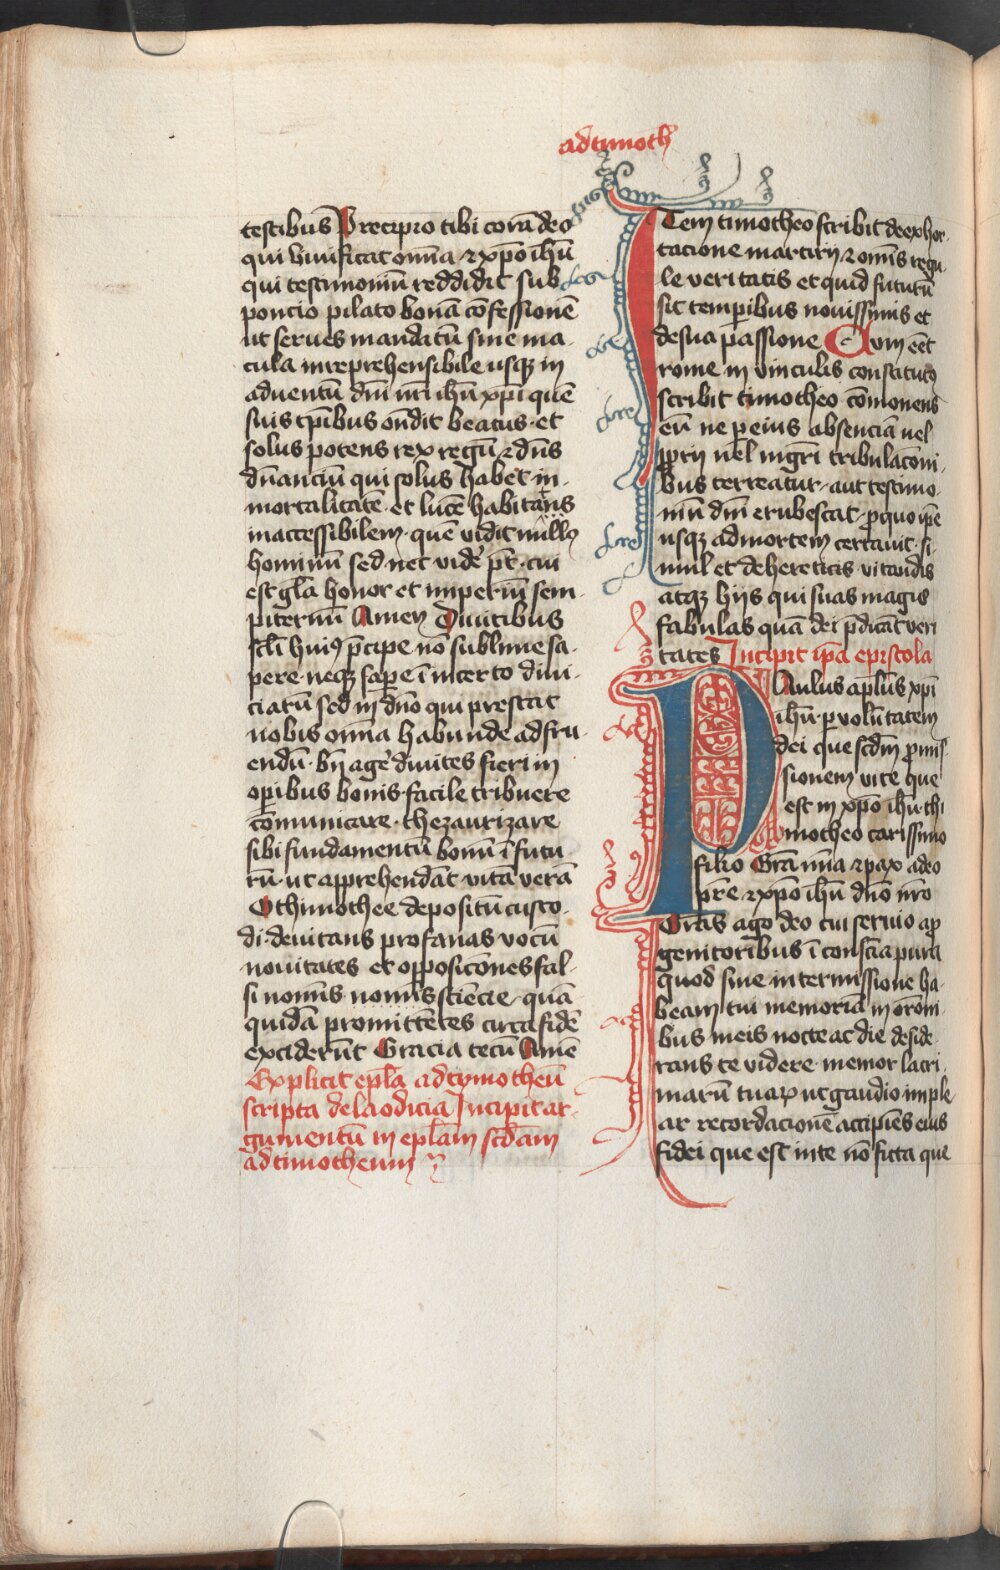 ad timoth
testibus Precipio tibi corā deo
qui viuificat om̄a ⁊ xp̄o ih̄u
qui testimoniū reddidit sub
poncio pilato bonā cōfessionē
ut serues mandatū sine ma-
cula inreprehensibile usqꝫ in
aduentū dn̄i nr̄i ih̄u xp̄i quē
suis tp̄ibus on̄dit beatus et
solus potens rex regū ⁊ dn̄s
dn̄anciū qui solus habet in-
mortalitatē et lucē habitans
inaccessibilem quē vidit nullꝰ
hominū sed nec videˀ pt̄ cui
est gl̄a honor et imperiū sem-
piternū Amen Diuitibus
scl̄i huiꝰ p̄cipe nō sublime sa-
pere neqꝫ sap̄e ī incerto diui-
ciarū sed in dn̄o qui prestat
nobis om̄a habunde ad fru-
endū bn̄ ageˀ diuites fieri in
op̄ibus bonis facile tribuere
cōmunicare thezaurizare
sibi fundamentū bonū ī futu
rū ut apprehendāt vitā verā
O thimothee depositū custo-
di deuitans profanas vocū
nouitates et opposicōnes fal-
si nominis sciēcie quā
quidā promittētes circa fidē
exciderūt Gracia tecū Amē
Explicit ep̄la ad tymotheū
scripta de laodicia Incipit ar-
gumentū in ep̄lam scd̄am
ad timotheum
ITem timotheo scribit de exhor-
tacione martirij ⁊ om̄is regu
le veritatis et quid futurū
sit temp̄ibus nouissimis et
de sua passione Cum eēt
rome in vinculis constituto
scribit timotheo cōmonens
eū ne p̄eius absenciā uel
ꝓprij uel nigri tribulacōni-
bus terreatur aut testimo-
niū dn̄i erubescat ꝓ quo ip̄e
usqꝫ ad mortem certauit si-
mul et de hereticis vitandis
atqꝫ hijs qui suas magis
fabulas quā dei p̄dicāt veri
tates Incipit ip̄a epistola
PAulus apl̄us xp̄i
ih̄u ꝑ volūtatem
dei que scd̄m ꝓmis-
sionem vite que
est in xp̄o ih̄u thi
motheo carissimo
filio Grā mīa ⁊ pax a deo
pr̄e ⁊ xp̄o ih̄u dn̄o nr̄o
Grās ago deo cui seruio a ꝓ
genitoribus ī consciā pura
quod sine intermissione ha-
beam tui memoriā in orōni-
bus meis nocte ac die deside-
rans te videre memor lacri-
marū tuaꝝ ut gaudio imple
ar recordacionē accipiēs eius
fidei que est in te nō ficta que